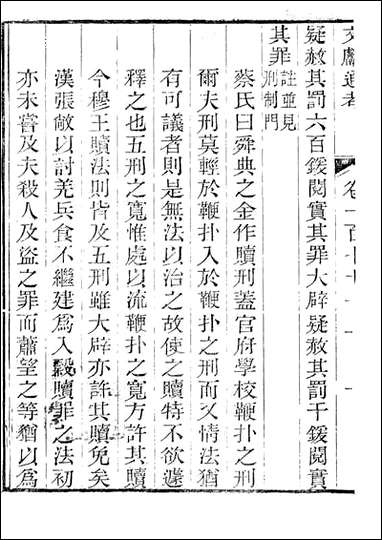 文獻通考 卷一百七十一
疑赦其罰六百鍰閱實其罪大辟疑赦其罰千鍰閱實
其罪註並見刑制門
蔡氏曰舜典之金作贖刑蓋官府學校鞭扑之刑
爾夫刑莫輕於鞭扑入於鞭扑之刑而又情法猶
有可議者則是無法以治之故使之贖特不欲遽
釋之也五刑之寬惟處以流鞭扑之寬方許其贖
今穆王贖法則皆及五刑雖大辟亦許其贖免矣
漢張敞以討羌兵食不繼建為入穀贖罪之法初
亦未嘗及夫殺人及盜之罪而蕭望之等猶以為